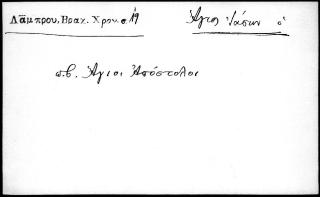 Λάμπρου, Ηρακ. Χρον. σ 19
Άγιος Ιάσων ὁ
σ.β. Άγιοι Ἀπόστολοι